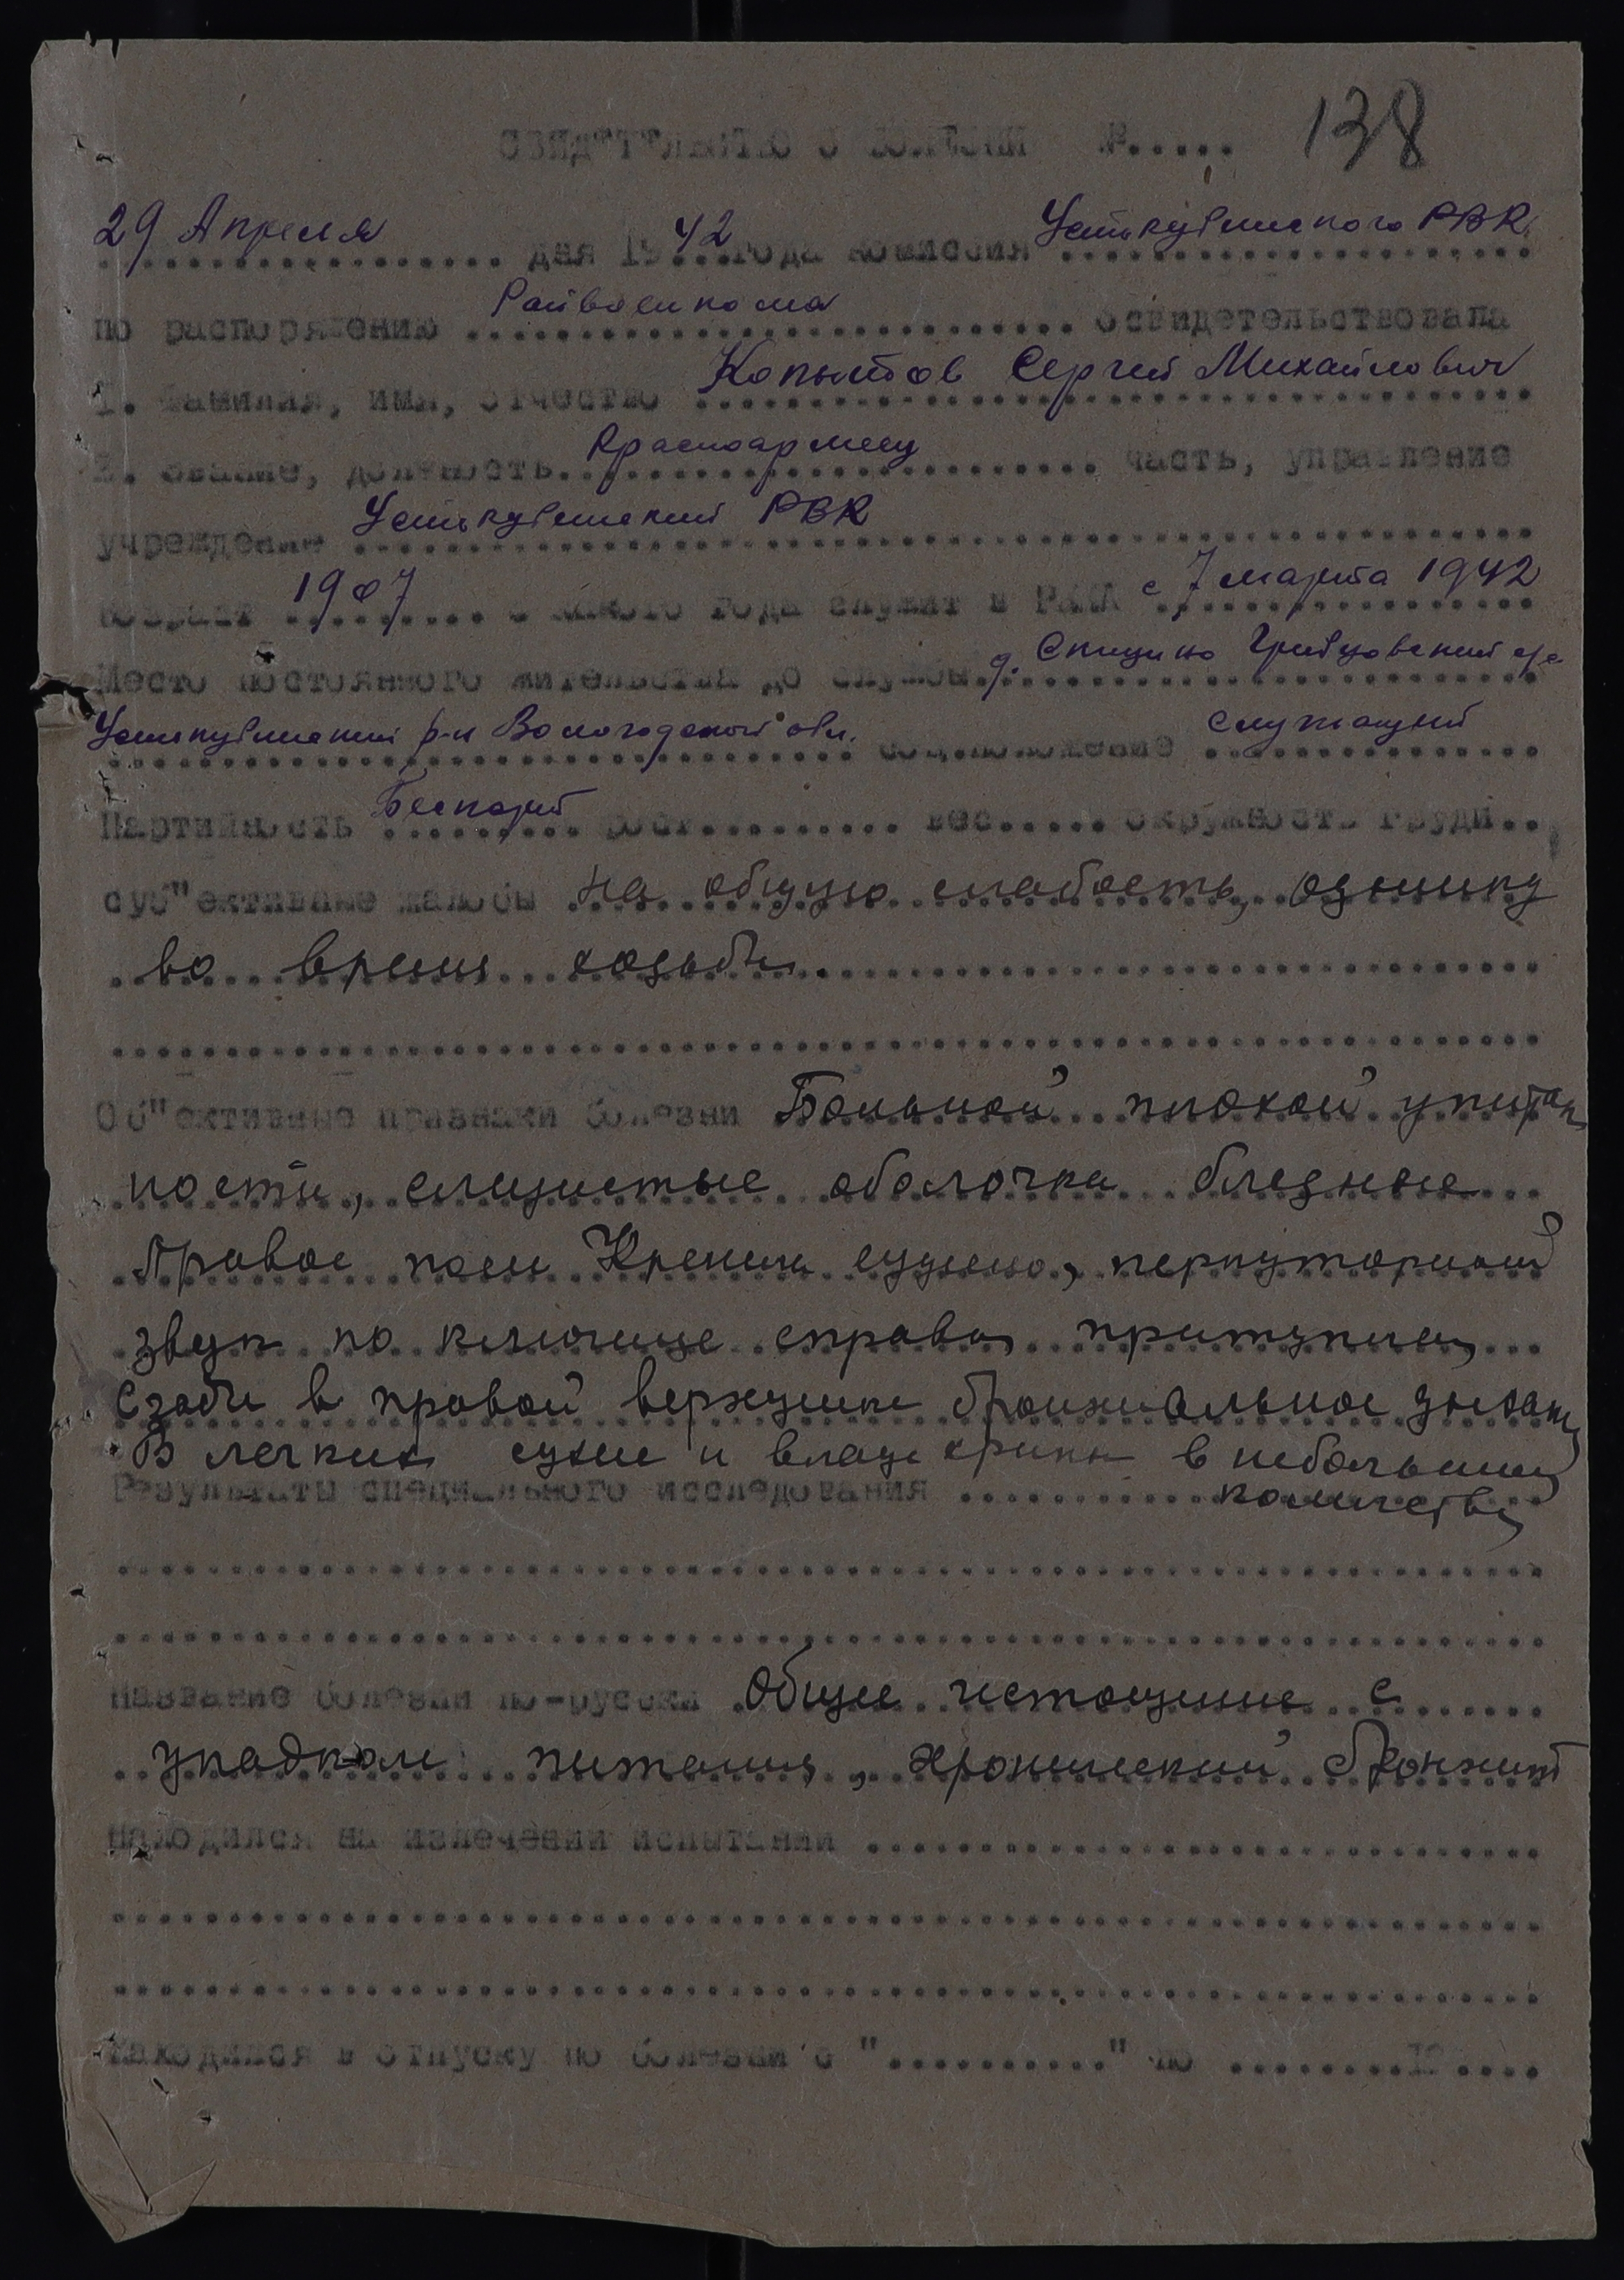 СВИДЕТЕЛЬСТВО О БОЛЕЗНИ №..... 138
29 Апреля дня 1942 года комиссия Устькубинского РВК
по распоряжению Райвоенкома освидетельствовала
1. Фамилия, имя, отчество Копытов Сергей Михайлович
2. Звание, должность Красноармеец часть, управление
учреждение Устькубинский РВК
возраст 1907 с какого года служит в РККА с 7 марта 1942
Место постоянного жительства до службы д. Спицино Грибцовский с/с
Устькубинский р-н Вологодской обл. соц.положение служащий
Партийность Беспарт рост.......... вес..... окружность груди..
суб"ективные жалобы на общую слабость, одышку
во время ходьбы.
Об"ективные признаки болезни Больной плохой упитан
ности, слизистые оболочки бледные
Правое поле Кренига сужено, перкуторный
звук по ключице справа притуплен,
Сзади в правой верхушке бронхиальное дыхани
В легких сухие и влаж хрипы в небольшом
количестве
Результаты специального исследования
Название болезни по-русски Общее истощение с
упадком питания, хронический бронхит
находился на излечении испытании
находился в отпуску по болезни с ".........." по ........19....